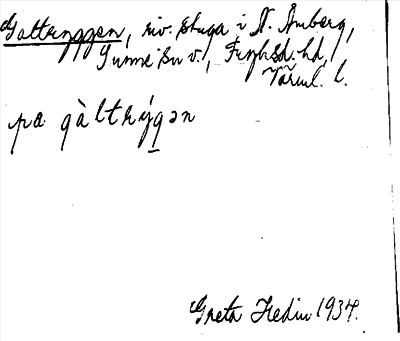 Galtryggen, riv. stuga i N. Åmberg,
Sunne sn v., Fryksd. hd,
Värml. l.
pa gàlthýgən
Greta Hedin 1934.